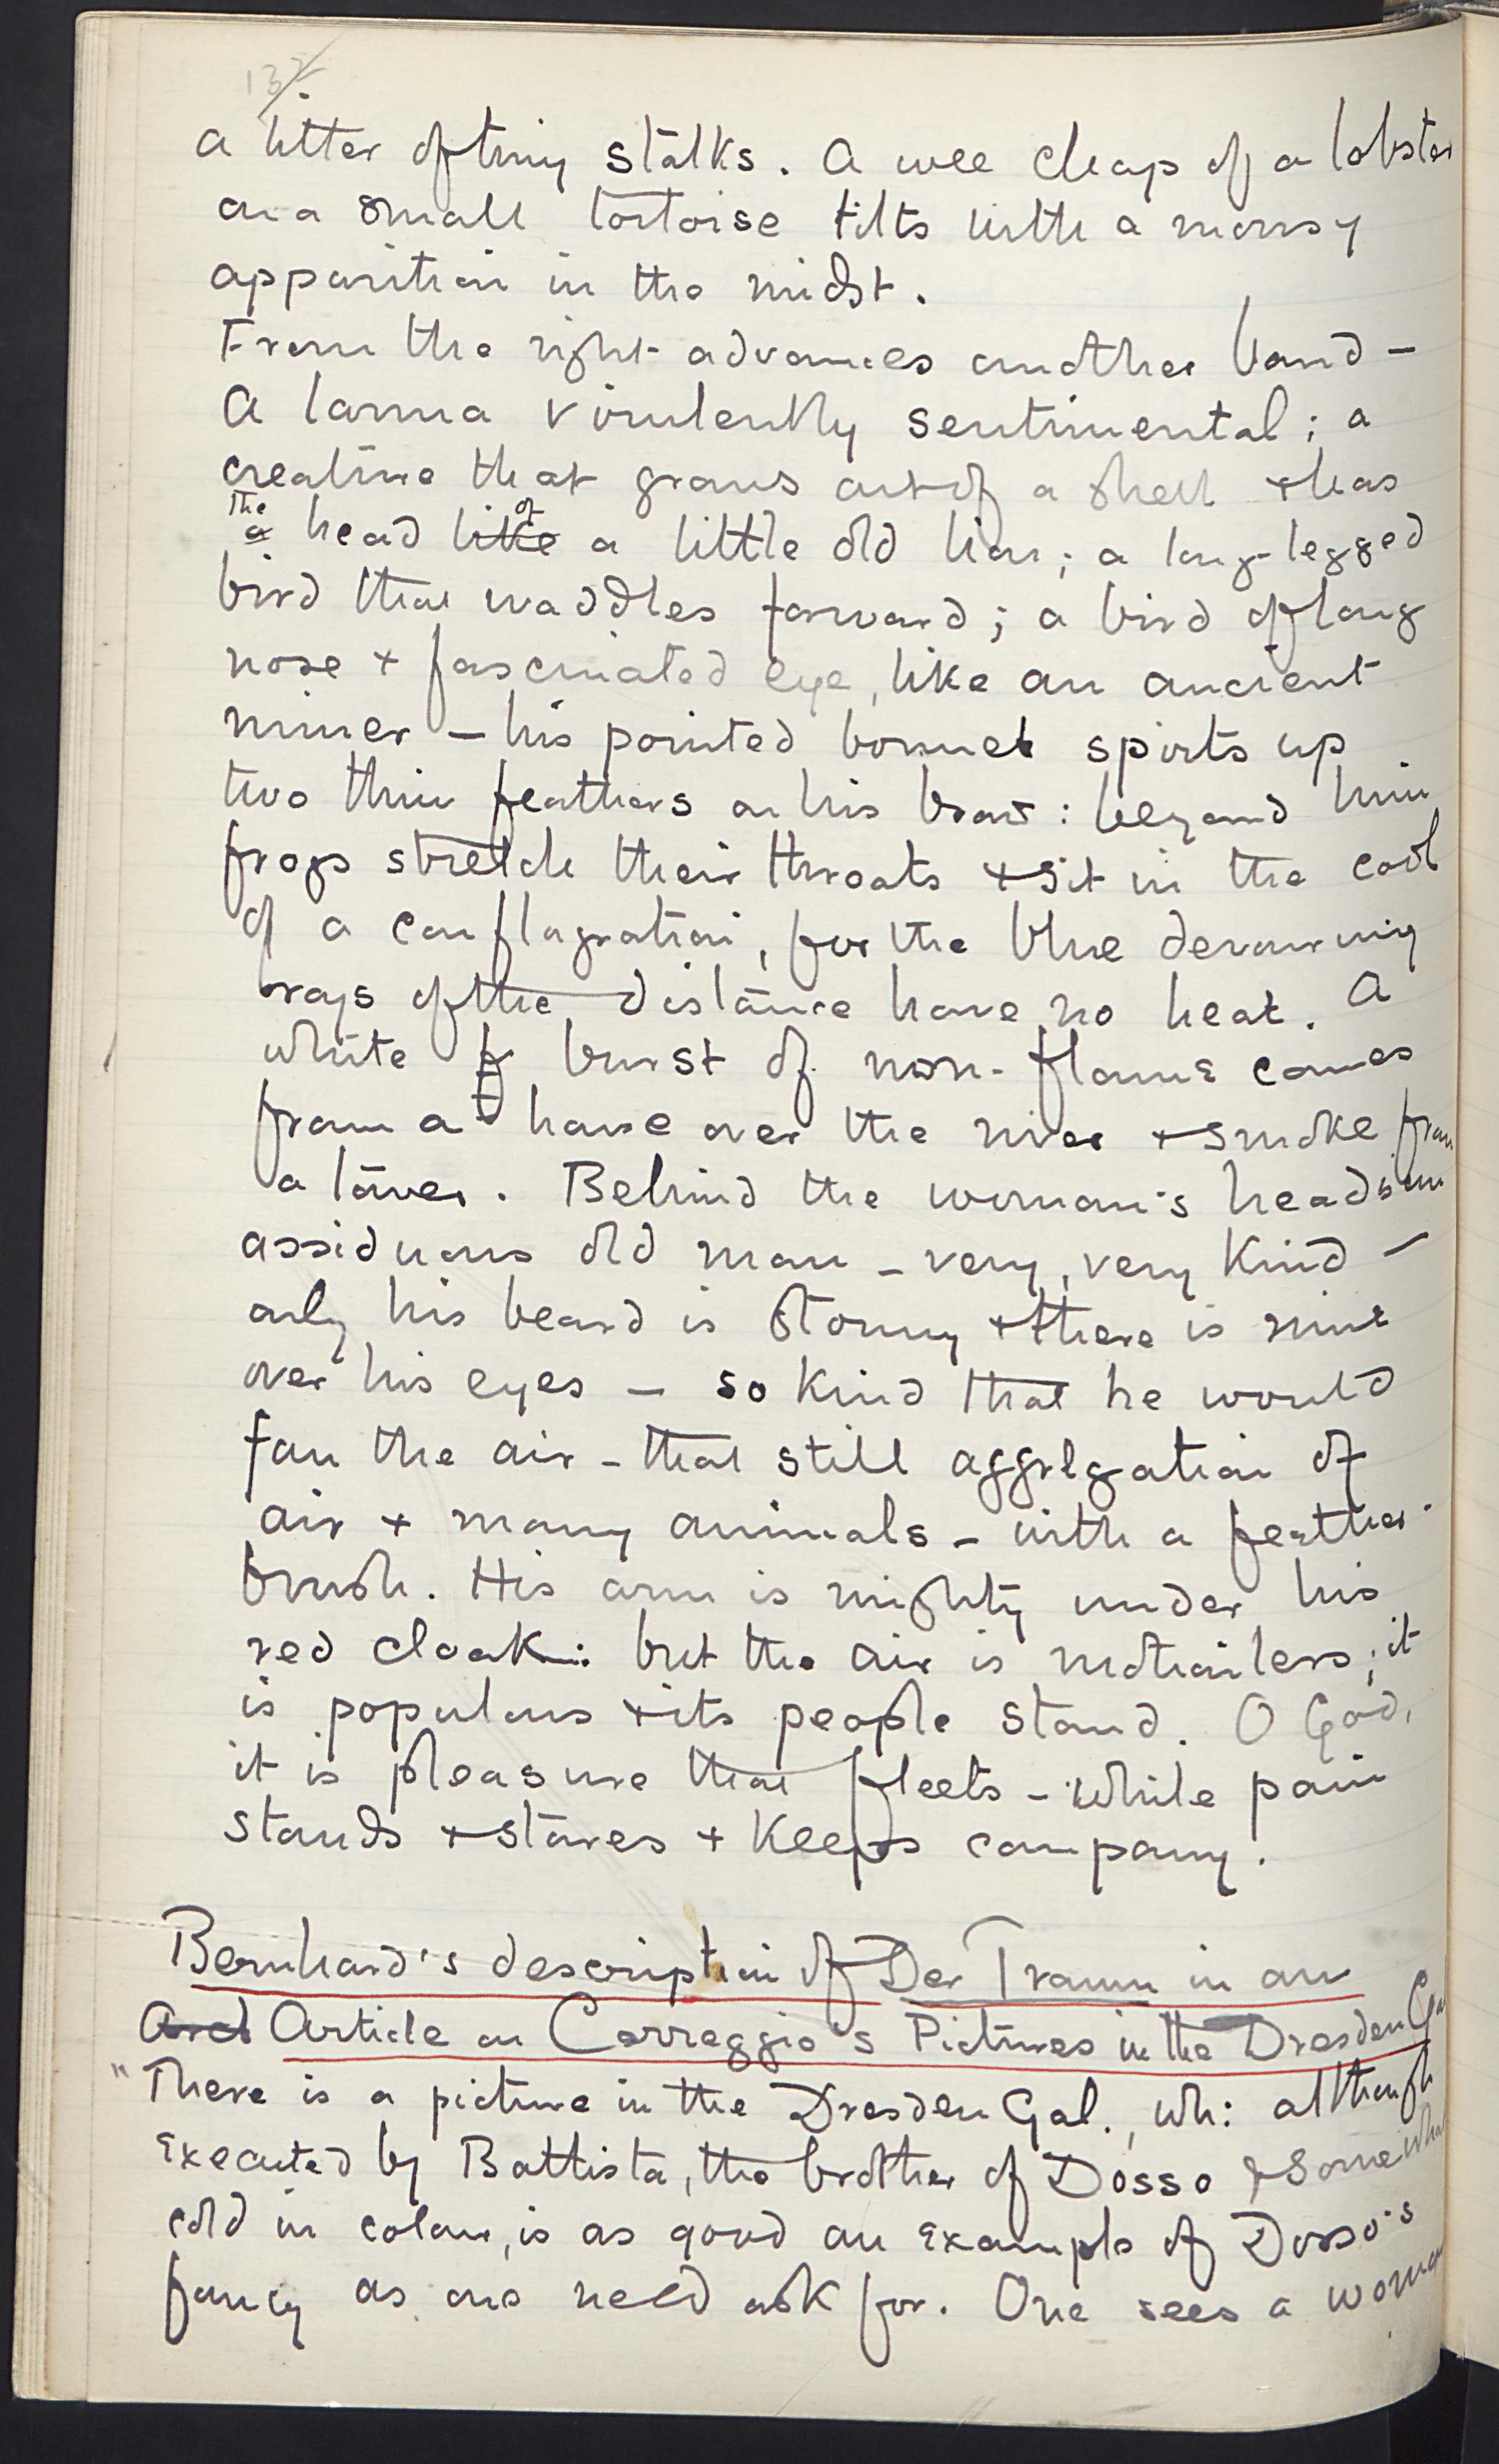 132
a litter of tiny stalks. A wee chap of a lobster
on a small tortoise tilts with a mousy
apparition in the midst.
From the right advances another band –
A lamia virulently sentimental; a
creature that grows out of a shell & has
the a head like of a little old lion; a long-legged
bird that waddles forward; a bird of long
nose & fascinated eye, like an ancient
miner – his pointed bonnet spirts up
two thin feathers on his brow: beyond him
frogs stretch their throats & sit in the cool
of a conflagration, for the blue devouring
rays of the distance have no heat. A
white burst of non-flame comes
from a house over the river & smoke from
a tower. Behind the woman's head's an
assiduous old man – very, very kind –
only his beard is stormy & there is
over his eyes – so kind that he would
fan the air – that still aggregation of
air & many animals – with a feather-
brush. His arm is mighty under his
red cloak: but the air is motionless; it
is populous & its people stand. O God,
it is pleasure that fleets – while pain
stands & stares & keeps company.
Bernhard's description of Der Traum in an
Article on Correggio's Pictures in the Dresden Gal
"There is a picture in the Dresden Gal., wh: although
executed by Battista, the brother of Dosso & somewhat
cold in colour, is as good an example of Dosso's
fancy as one need ask for. One sees a woman